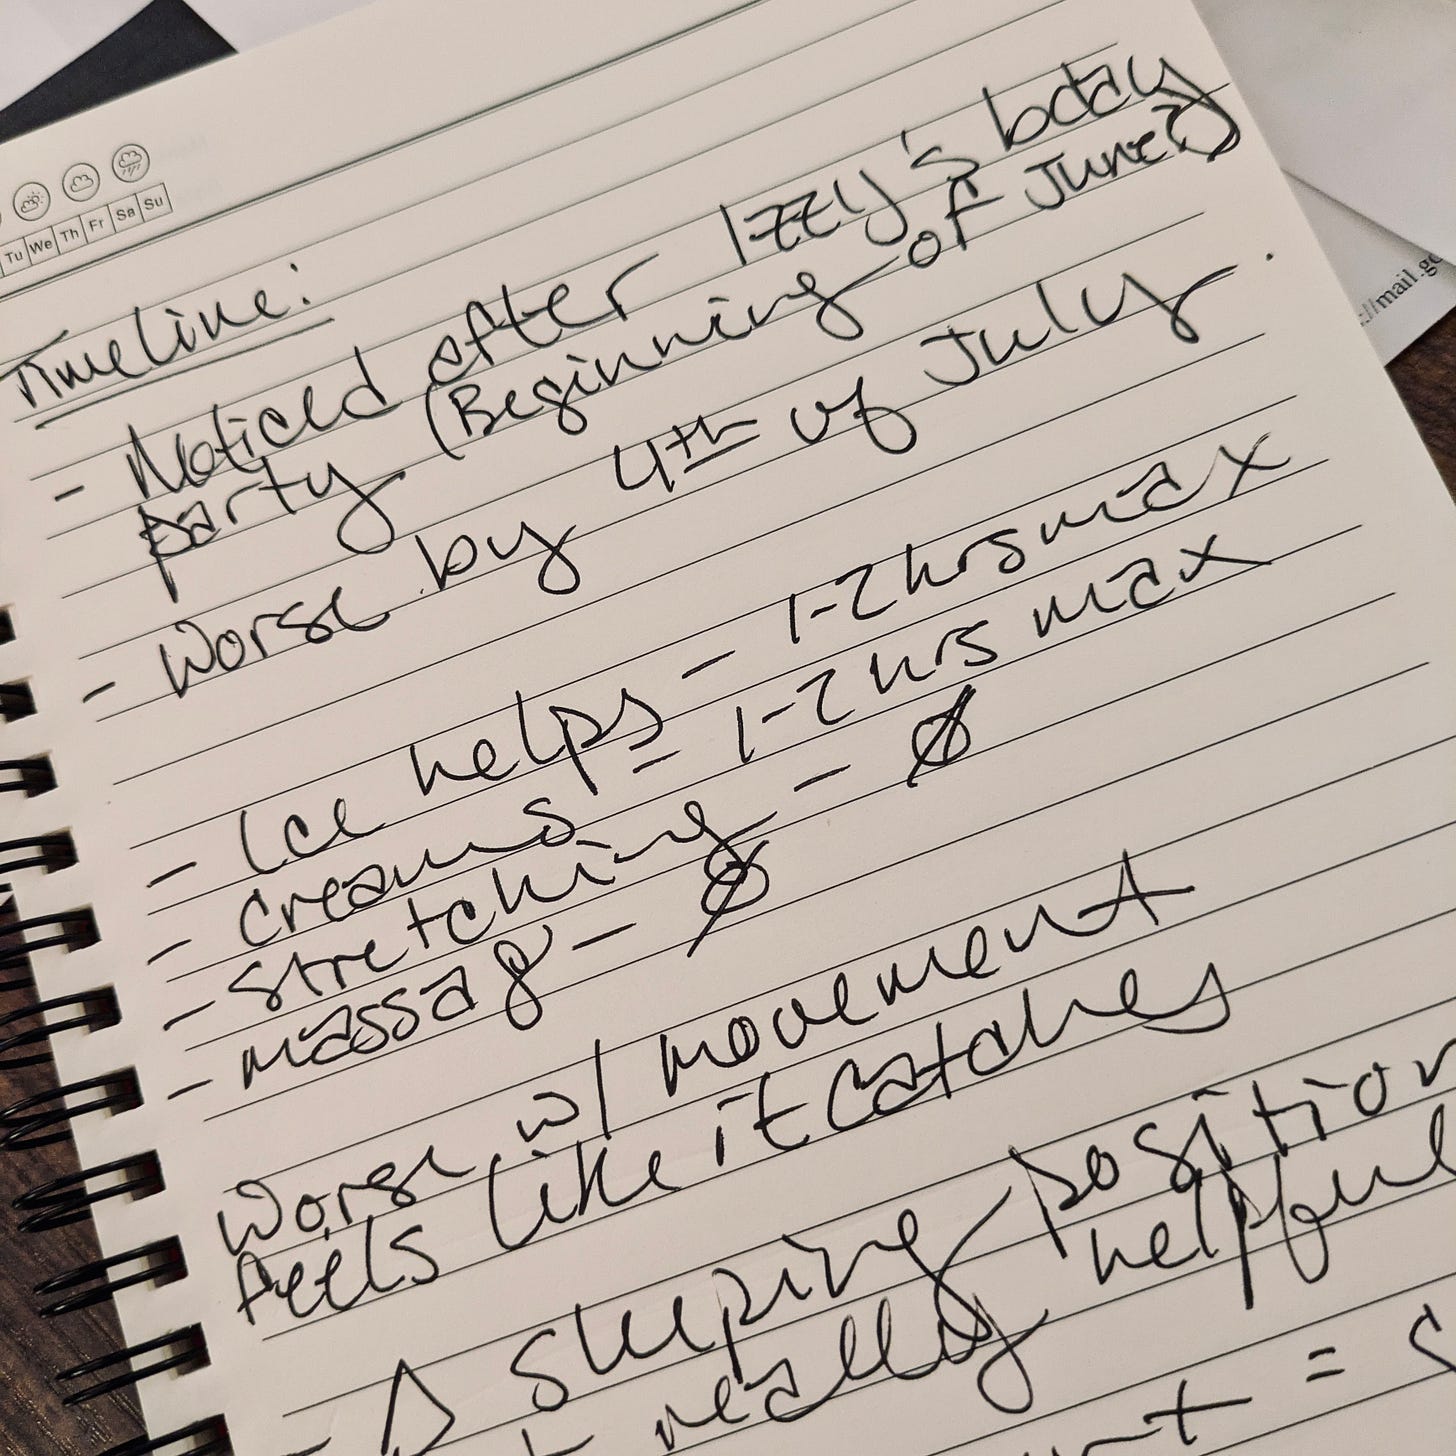 Tu We Th Fr Sa Su
Timeline:
- Noticed after Izzy's bday
party (Beginning of June?)
- Worse by 4th of July.
- Ice helps - 1-2 hrs max
- creams - 1-2 hrs max
- stretching - Ø
- massage - Ø
Worse w/ movement
feels like it catches
- Δ sleeping position
really helpful
=
://mail.go